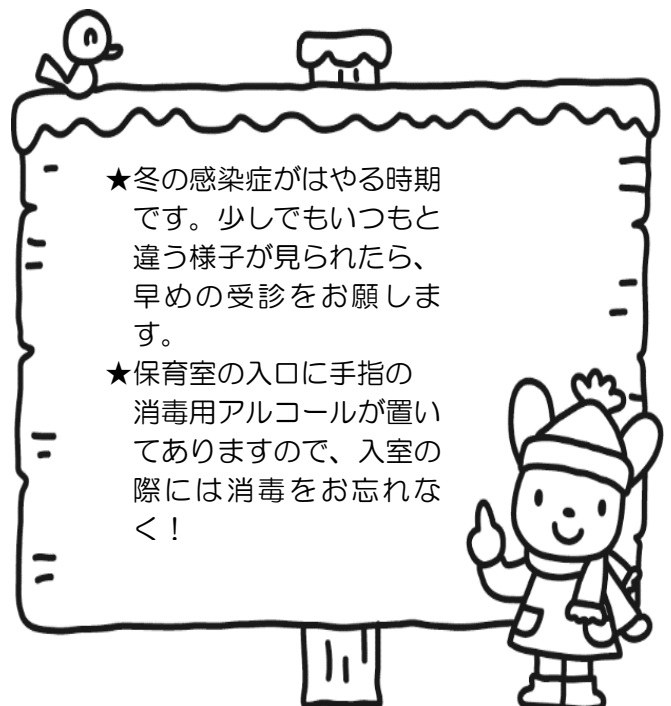 ★冬の感染症がはやる時期
です。少しでもいつもと
違う様子が見られたら、
早めの受診をお願しま
す。
★保育室の入口に手指の
消毒用アルコールが置い
てありますので、入室の
際には消毒をお忘れな
く！